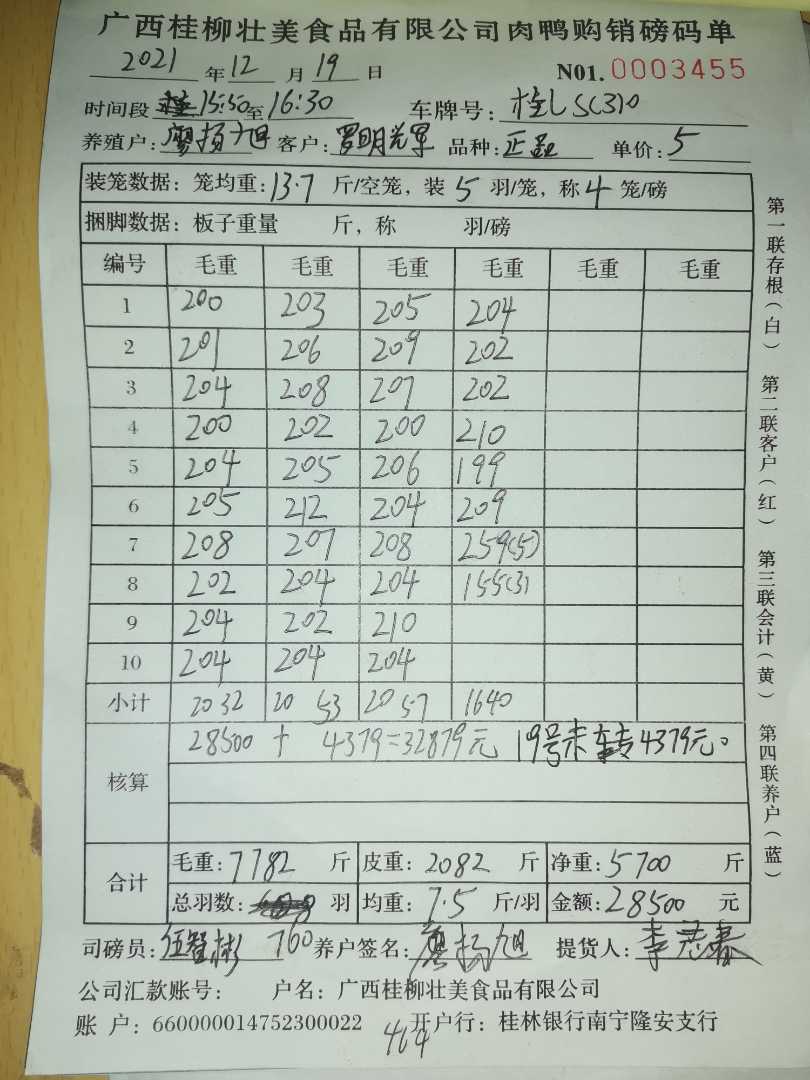 广西桂柳壮美食品有限公司肉鸭购销磅码单
2021 年 12 月 19 日 N01. 0003455
时间段 15:50 至 16:30 车牌号:
养殖户: 廖扬旭 客户: 罗明光军 品种: 正 单价: 5
装笼数据: 笼均重: 13.7 斤/空笼, 装 5 羽/笼, 称 4 笼/磅
捆脚数据: 板子重量 斤, 称 羽/磅
编号 毛重 毛重 毛重 毛重 毛重 毛重
1 200 203 205 204
2 201 206 209 202
3 204 208 207 202
4 200 202 200 210
5 204 205 206 199
6 205 212 204 209
7 208 207 208 259(5)
8 202 204 204 155(3)
9 204 202 210
10 204 204 204
小计 2032 2053 2057 1640
核算 28500 + 4379=32879元 19号未转4379元。
合计 毛重: 7782 斤 皮重: 2082 斤 净重: 5700 斤
总羽数: 羽 均重: 7.5 斤/羽 金额: 28500 元
司磅员: 伍智彬 760 养户签名: 廖扬旭 提货人: 李春
公司汇款账号: 户名: 广西桂柳壮美食品有限公司
账 户: 660000014752300022 464 开户行: 桂林银行南宁隆安支行
第一联存根(白) 第二联客户(红) 第三联会计(黄) 第四联养户(蓝)